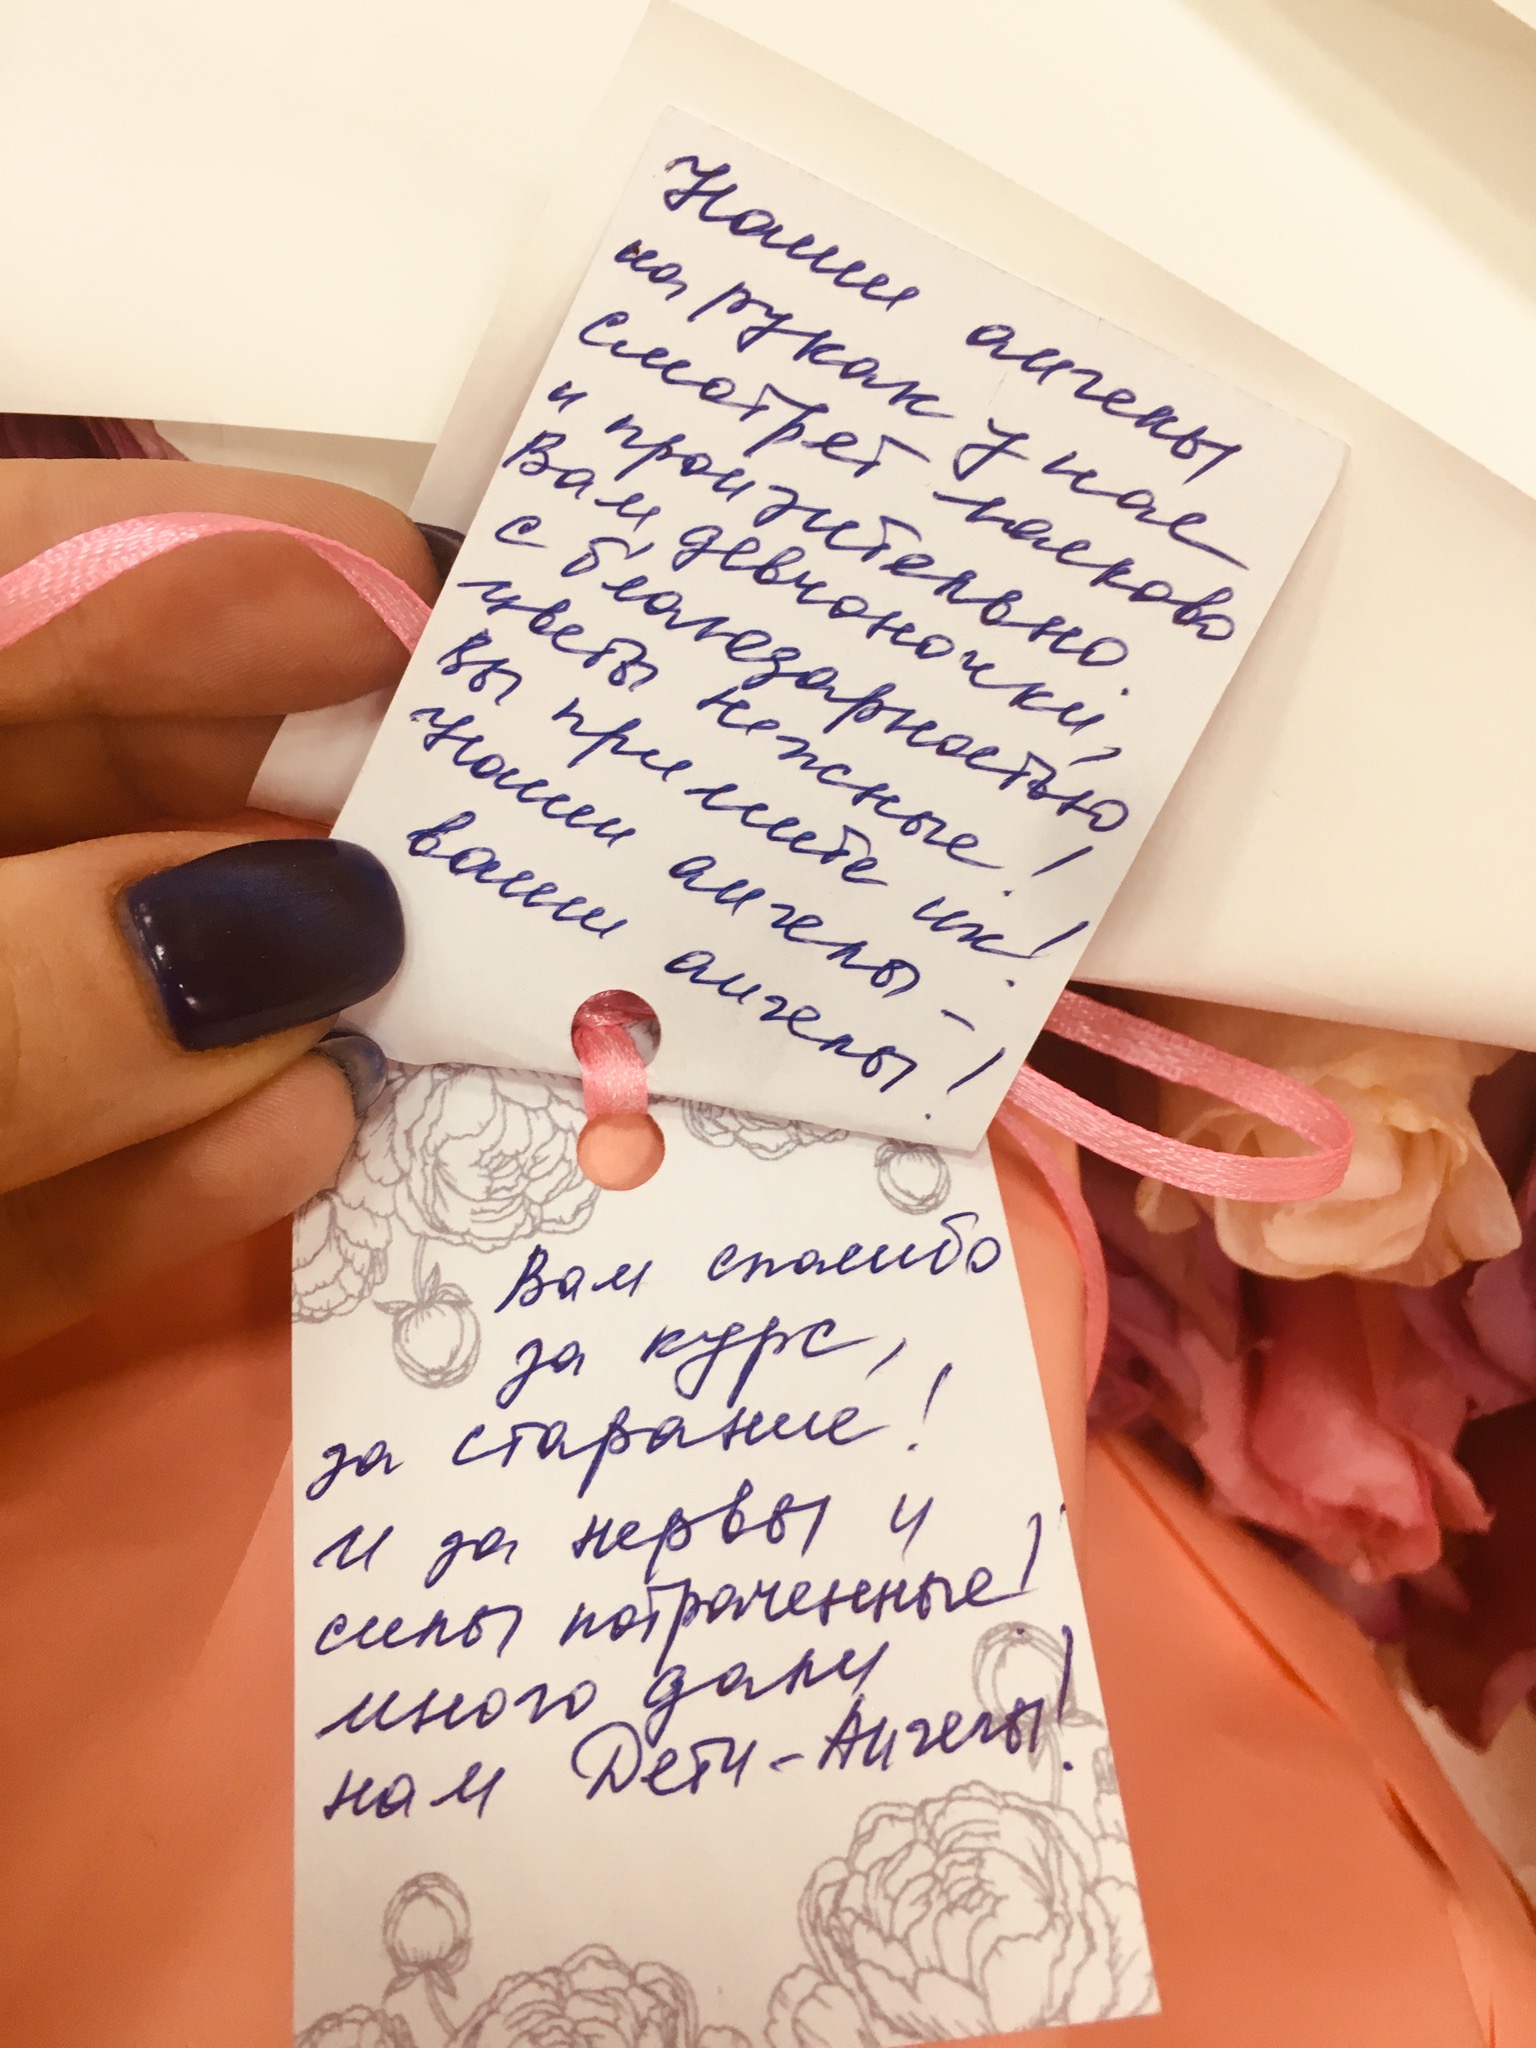 Наши ангелы
на руках у нас
смотрет ласково
и пронзительно.
Вам, девчоночки,
с благодарностью
цветы нежные!
Вы примите их!
Наши ангелы -
ваши ангелы!
Вам спасибо
за курс,
за старание!
И за нервы и
силы потраченные!
много дали
нам Дети-Ангелы!